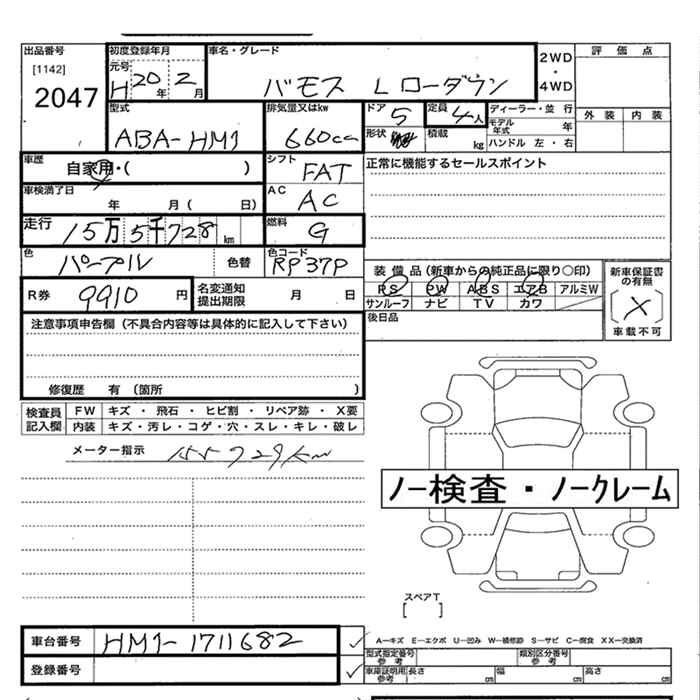 出品番号 初度登録年月 車名・グレード
[1142] 元号
2047 H 20年 2月 バモス L ローダウン 2WD・4WD 評価点
型式 排気量又はkw ドア 定員 ディーラー・並行 外装 内装
ABA-HM1 660cc 5 4人 モデル年式 年
形状 積載 kg ハンドル 左・右
車歴 シフト 正常に機能するセールスポイント
自家用・( ) FAT
車検満了日 AC
年 月( 日) AC
走行 15万5千728km 燃料 G
色 パープル 色替 色コード RP37P
装備品(新車からの純正品に限り○印) 新車保証書の有無
PS PW ABS エアB アルミW
サンルーフ ナビ TV カワ
[×]
車載不可
R券 9910円 名変通知提出期限 月 日
後日品
注意事項申告欄(不具合内容等は具体的に記入して下さい)
修復歴 有(箇所 )
検査員記入欄 FW キズ・飛石・ヒビ割・リペア跡・X要
内装 キズ・汚レ・コゲ・穴・スレ・キレ・破レ
メーター指示 155729km
ノー検査・ノークレーム
スペアT
[ ]
車台番号 HM1-1711682
A-キズ E-エクボ U-凹み W-補修跡 S-サビ C-腐食 XX-交換済
型式指定番号 参考 類別区分番号 参考
登録番号
車庫証明用 参考 長さ cm 幅 cm 高さ cm